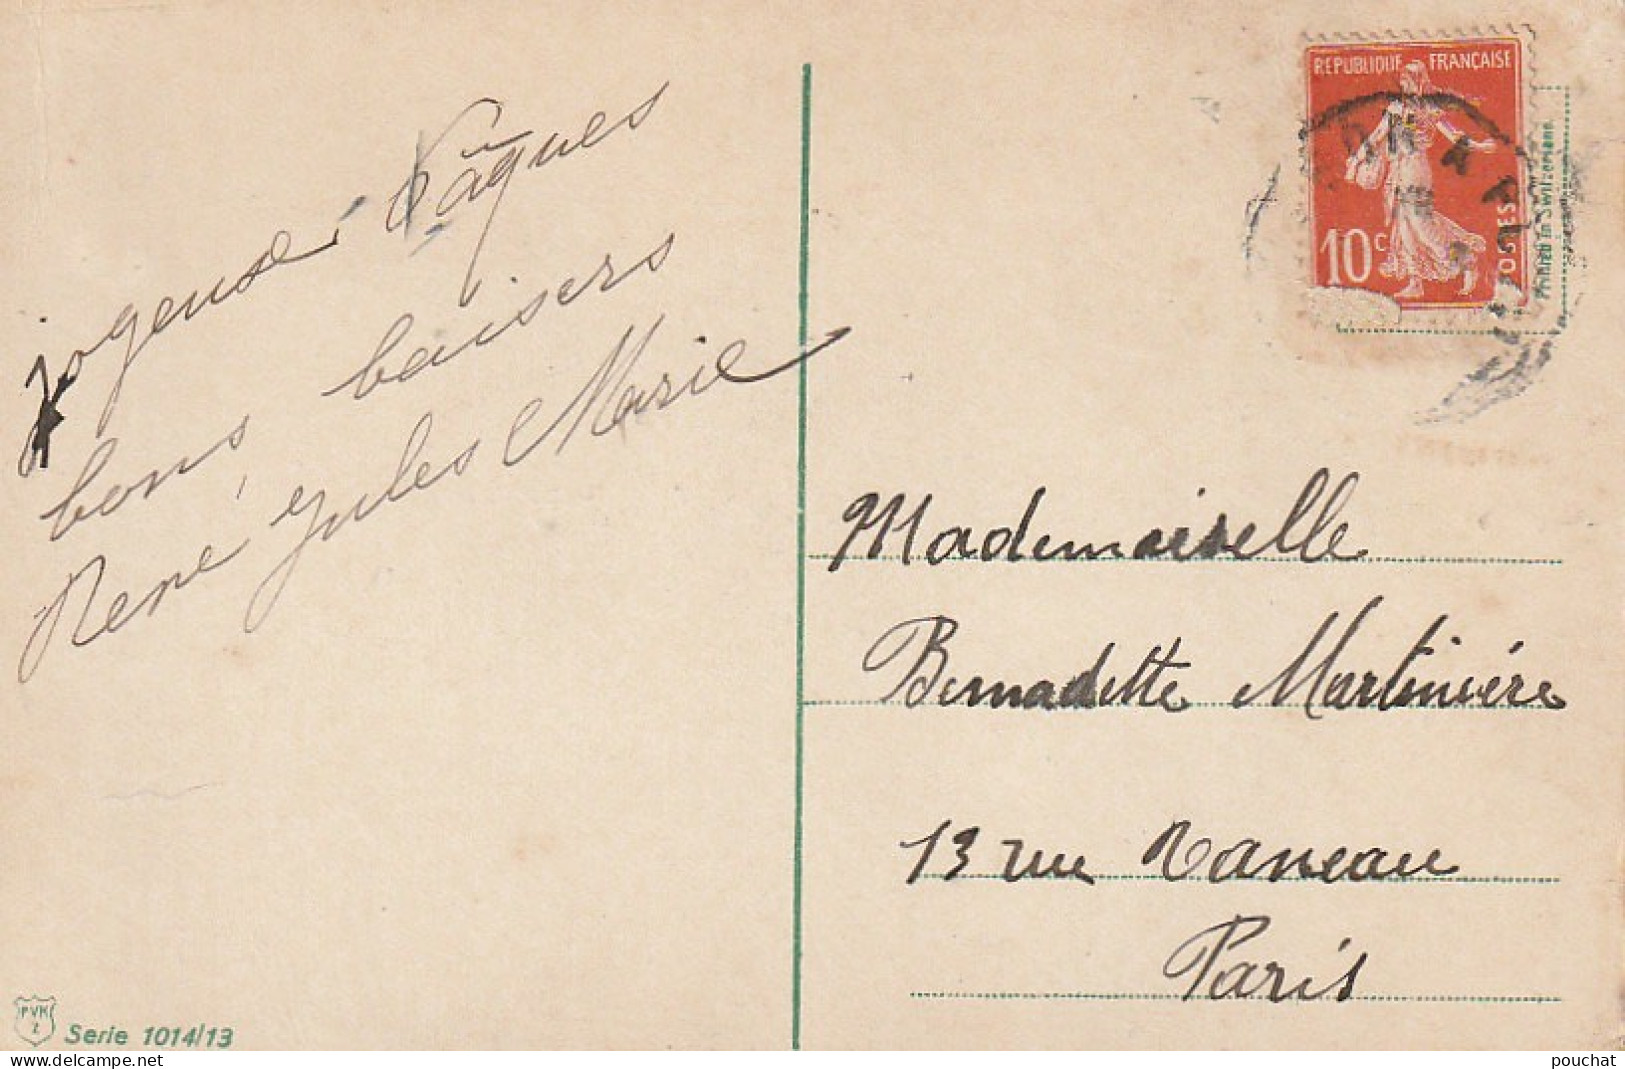 joyeuse Pâques
bons baisers
René Jules Marie
REPUBLIQUE FRANÇAISE
10c
POSTES
Printed in Switzerland.
Mademoiselle
Bernadette Martinière
13 rue Vaneau
Paris
PVK
Z
Serie 1014/13
www.delcampe.net
pouchat